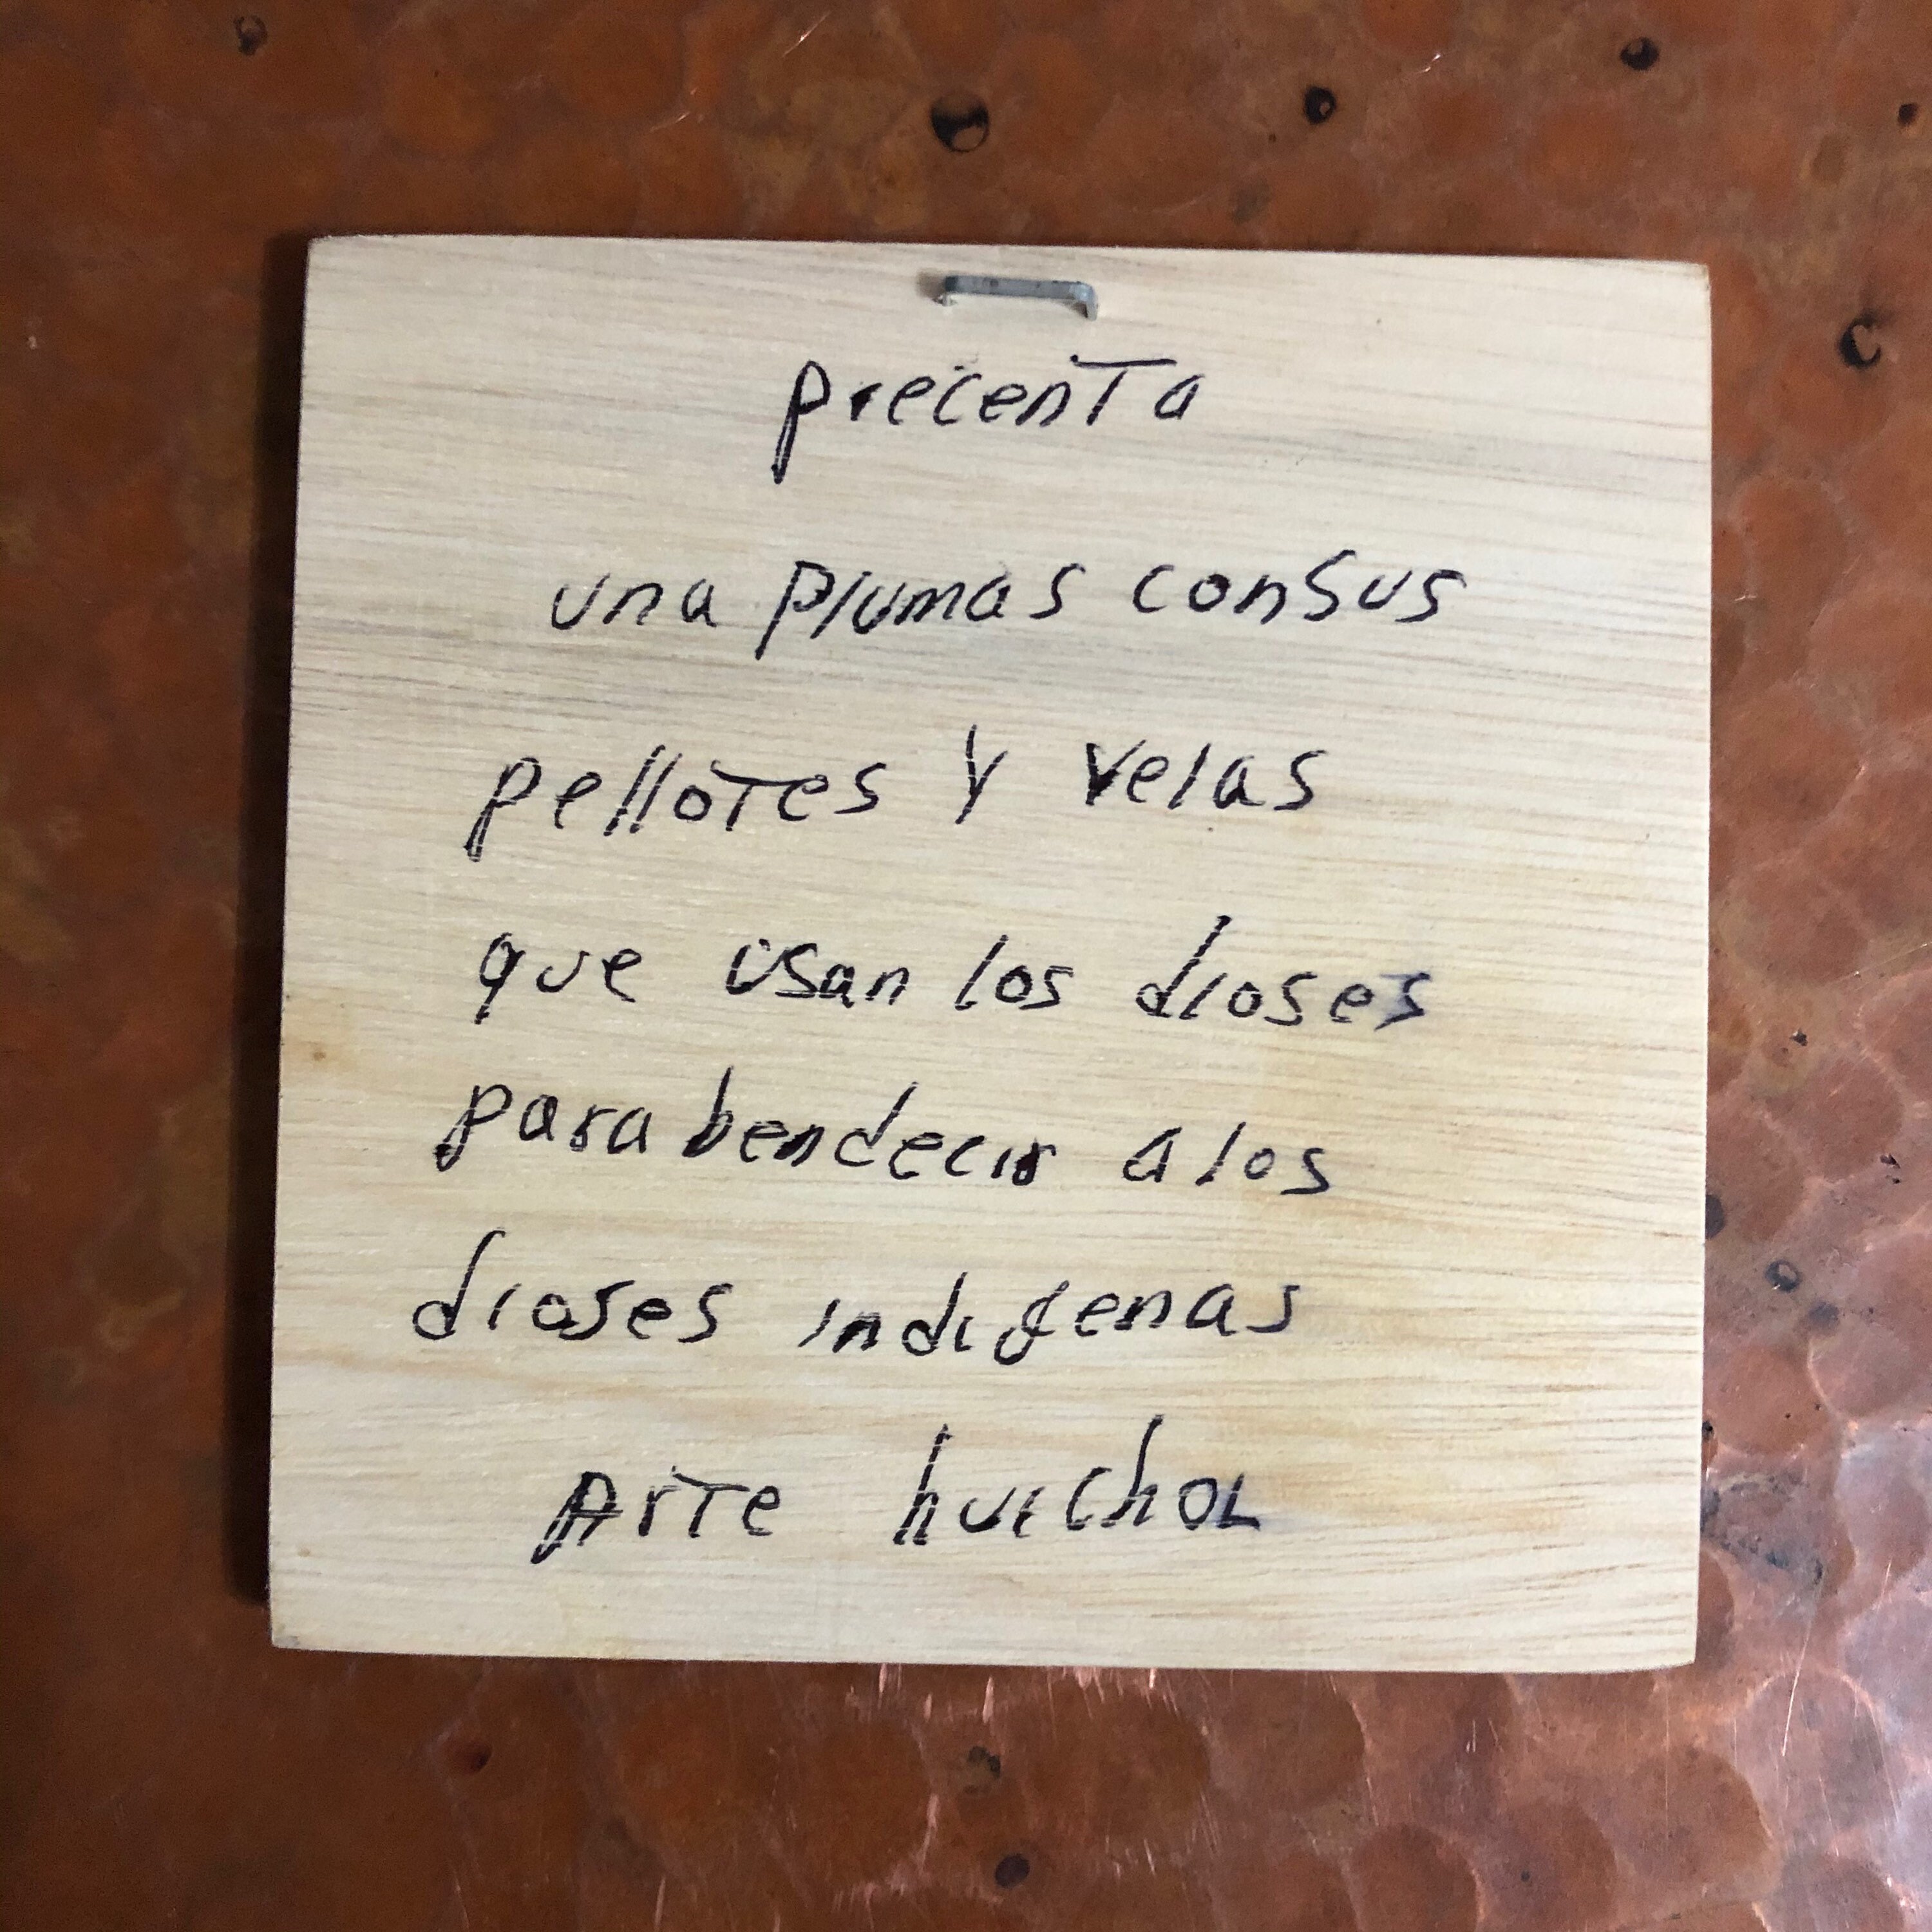 precenta
una plumas consus
pellotes y velas
que usan los dioses
para bendecir alos
dioses indigenas
Arte huichol